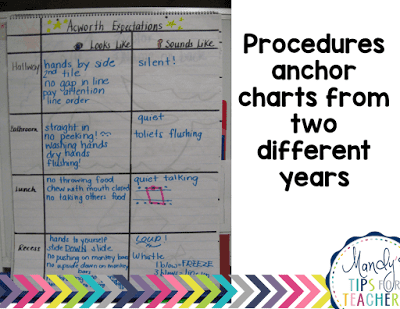 Acworth Expectations
Looks Like
Sounds Like
Hallway
hands by side
2nd tile
no gap in line
pay attention
line order
silent!
Bathroom
straight in
no peeking!
washing hands
dry hands
flushing!
quiet
toliets flushing
Lunch
no throwing food
chew with mouth closed
no taking others food
quiet talking
Recess
hands to yourself
slide down slide
no pushing on monkey bars
no upside down on monkey
bars
LOUD!
Whistle
1 blow=FREEZE
Procedures
anchor
charts from
two
different
years
Mandy's
TIPS FOR
TEACHERS